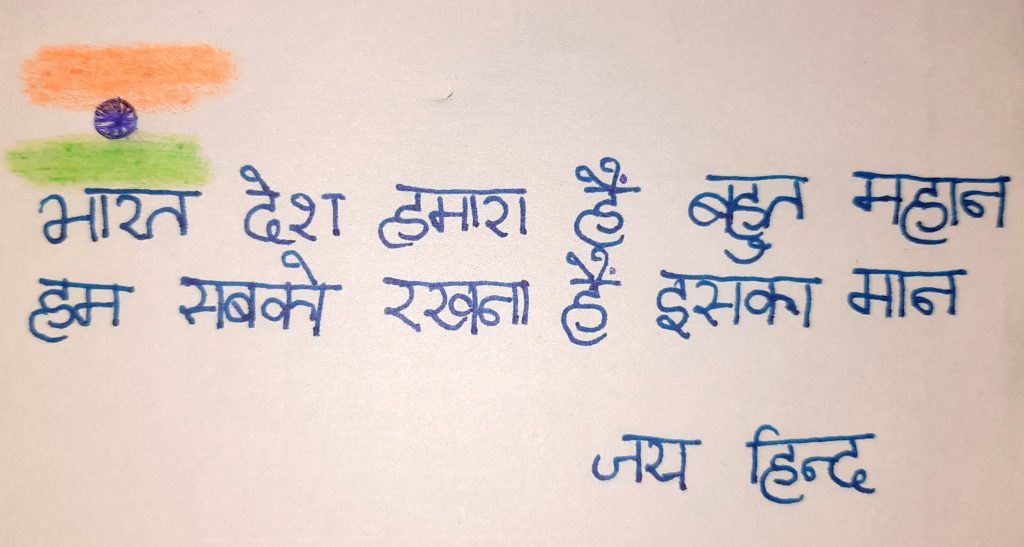 भारत देश हमारा हैं बहुत महान
हम सबको रखना हैं इसका मान
जय हिन्द